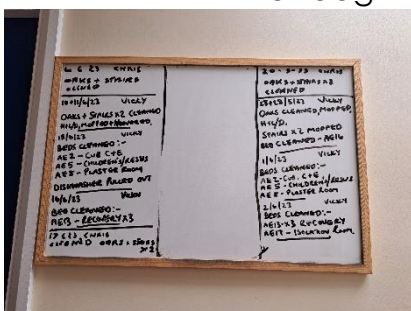 6 6 23 CHRIS
OAKS + STAIRS
CLEANED
VICKY
OARS + STAIRS X2 CLEANED
15/6/23 VICKY
BEDS CLEANED:-
AE2 - CUB C+E
AE5 - CHILDREN'S/RESUS
AE8 - PLASTER ROOM
DISHWASHER PULLED OUT
16/6/23 VICKY
BED CLEANED:-
AE13 - RECOVERY X3
CHRIS
X2
CHRIS
OAKS + STAIRS X2
CLEANED
VICKY
OAKS CLEANED, MOPPED,
STAIRS X2 MOPPED
BED CLEANED - AE16
1/6/23 VICKY
BEDS CLEANED:-
AE2 - CUB. C+E
AE5 - CHILDREN'S/RESUS
AE8 - PLASTER ROOM
2/6/23 VICKY
BEDS CLEANED:-
AE13 - X3 RECOVERY
AE17 - ISOLATION ROOM